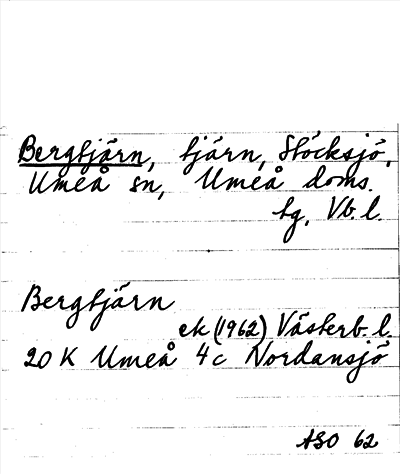 Bergtjärn, tjärn, Stöcksjö,
Umeå sn, Umeå doms.
tg, Vb. l.
Bergtjärn
ek (1962) Västerb. l.
20 K Umeå 4c Nordansjö
ASO 62